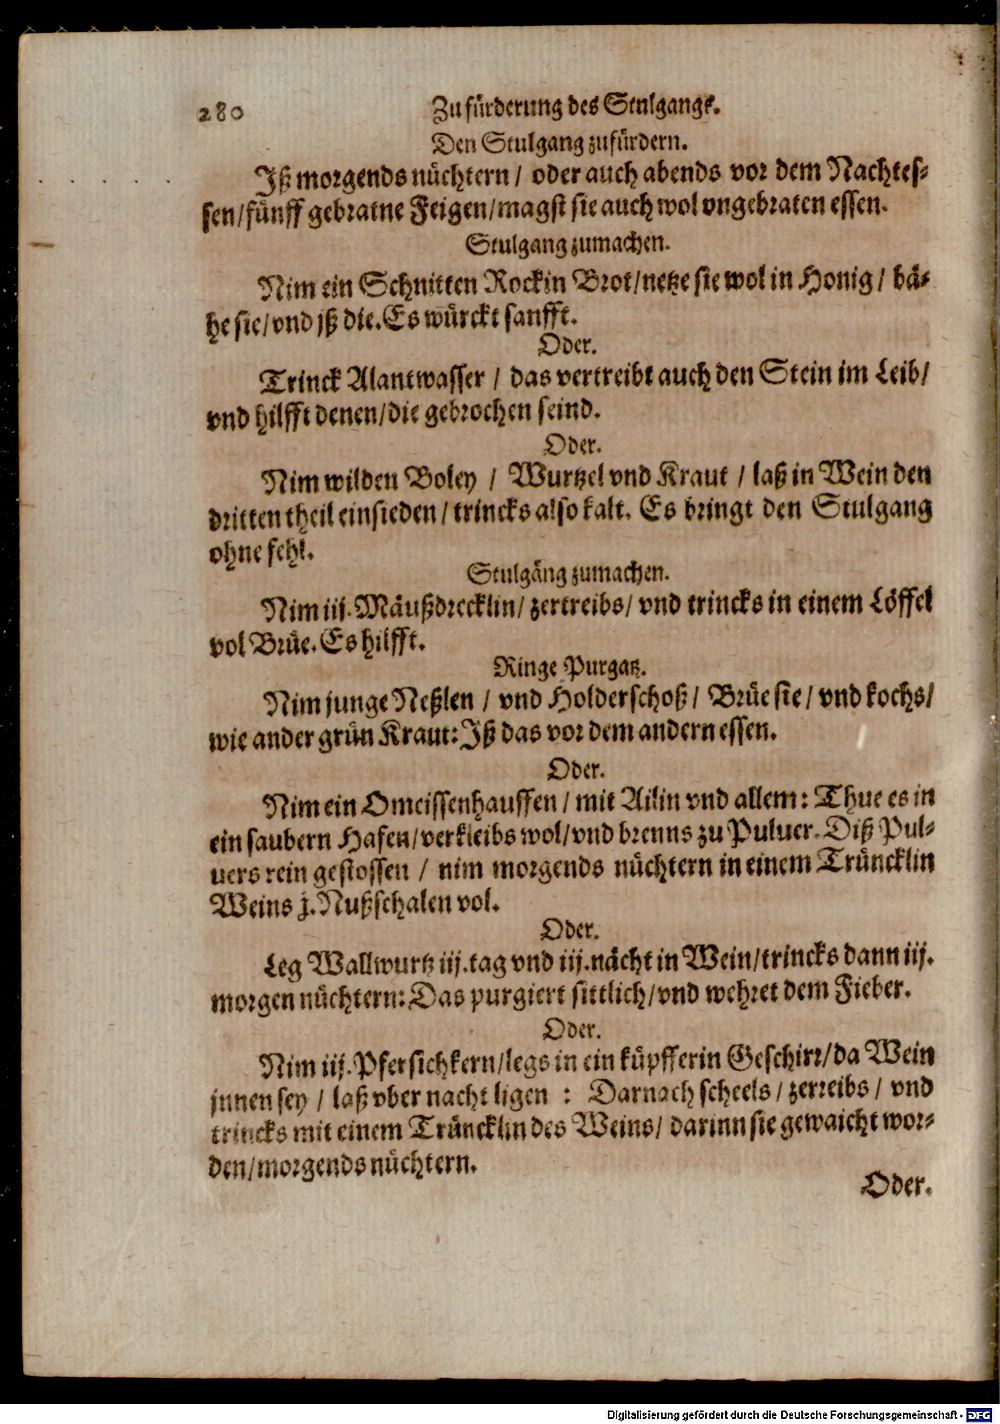 280 Zu fürderung des Stulgangs.
Den Stulgang zufürdern.
Jß morgends nüchtern / oder auch abends vor dem Nachtes-
sen/fünff gebratne Feigen/magst sie auch wol vngebraten essen.
Stulgang zumachen.
Nim ein Schnitten Rockin Brot/netze sie wol in Honig / bä-
he sie/vnd jß die. Es würckt sanfft.
Oder.
Trinck Alantwasser / das vertreibt auch den Stein im Leib/
vnd hilfft denen/die gebrochen seind.
Oder.
Nim wilden Boley / Wurtzel vnd Kraut / laß in Wein den
dritten theil einsieden / trincks also kalt. Es bringt den Stulgang
ohne fehl.
Stulgäng zumachen.
Nim iij. Mäußdrecklin/ zertreibs/ vnd trincks in einem Löffel
vol Brüe. Es hilfft.
Ringe Purgatz.
Nim junge Neßlen / vnd Holderschoß / Brüe sie / vnd kochs/
wie ander grün Kraut: Jß das vor dem andern essen.
Oder.
Nim ein Omeissenhauffen / mit Ailin vnd allem: Thue es in
ein saubern Hafen/verkleibs wol/vnd brenns zu Puluer. Diß Pul-
uers rein gestossen / nim morgends nüchtern in einem Trüncklin
Weins j. Nußschalen vol.
Oder.
Leg Wallwurtz iij. tag vnd iij. nächt in Wein/trincks dann iij.
morgen nüchtern: Das purgiert sittlich/vnd wehret dem Fieber.
Oder.
Nim iij. Pfersichkern/legs in ein küpfferin Geschirr/da Wein
jnnen sey / laß vber nacht ligen : Darnach scheels / zerreibs / vnd
trincks mit einem Trüncklin des Weins/ darinn sie gewaicht wor-
den/morgends nüchtern.
Oder.
Digitalisierung gefördert durch die Deutsche Forschungsgemeinschaft - DFG